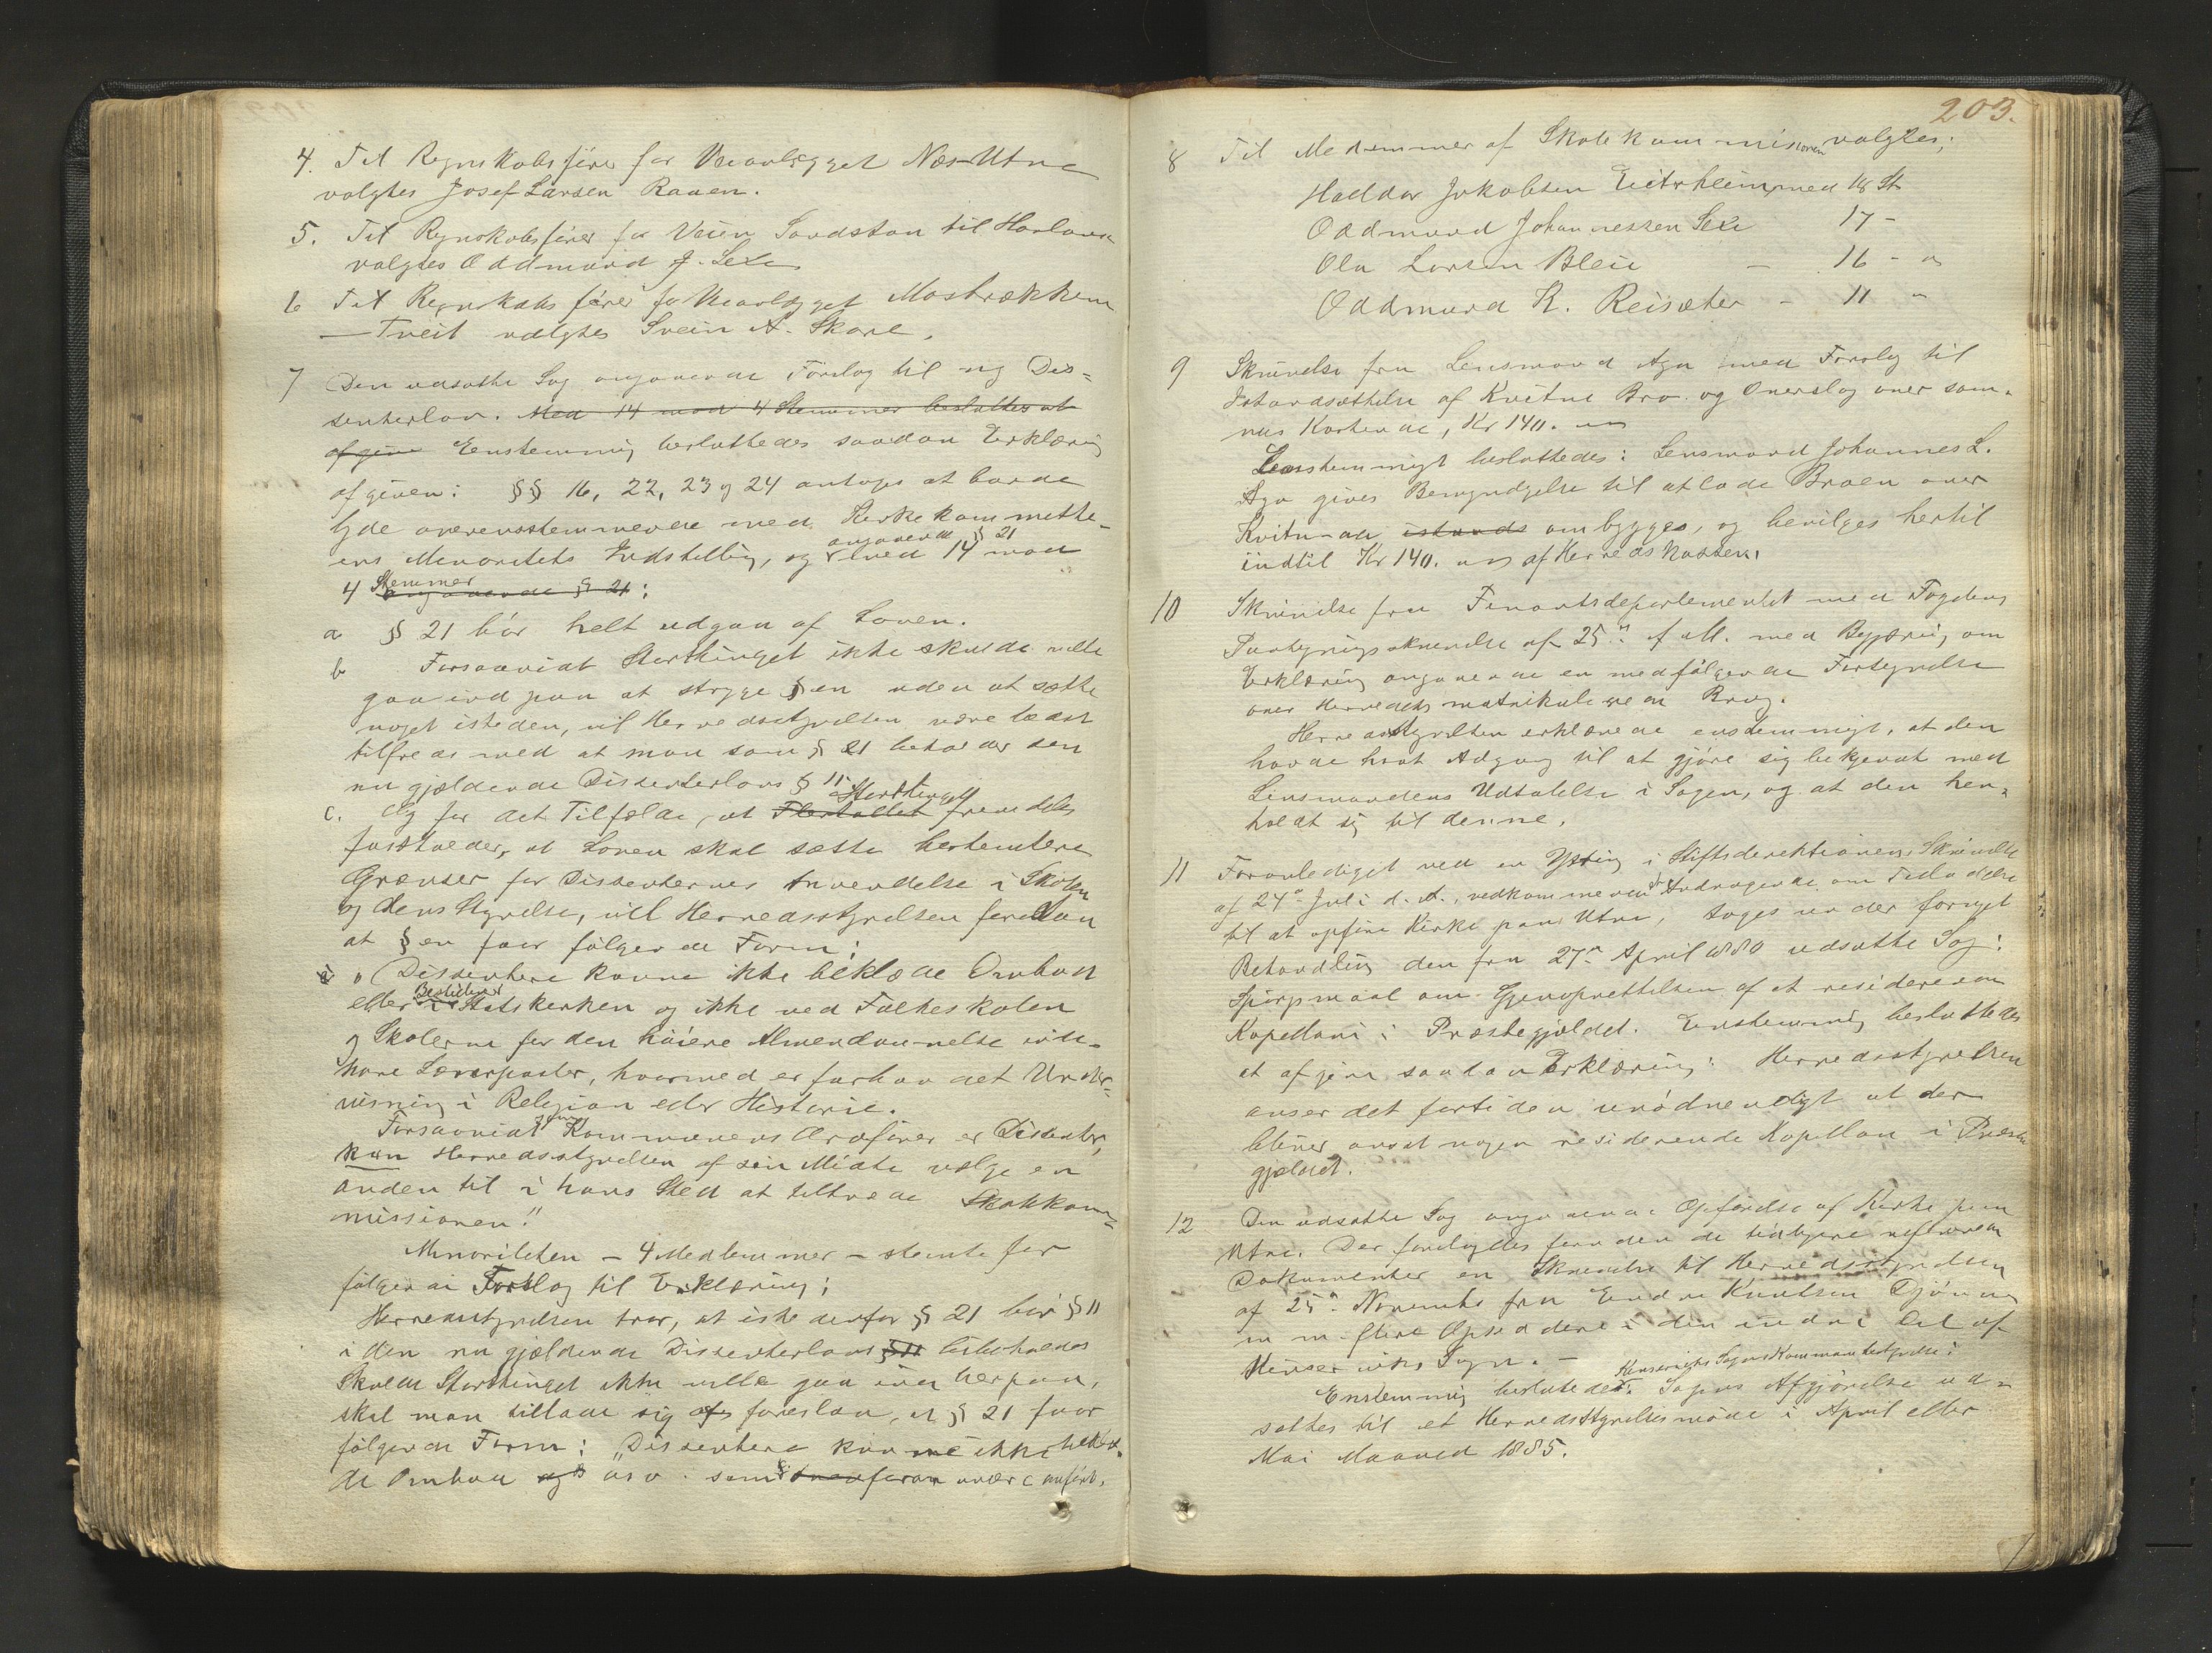 4. Til Regnskabsfører for Veianlægget Næs-Utne
valgtes Josef Larsen Raaen.
5. Til Regnskabsfører for Veien Sandstøa til
valgtes Oddmund J. Sexe
6 Til Regnskabsfører for Veianlægget Mosbrækken
— Tveit valgtes Svein A. Skare.
7 Den udsatte Sag angaaende Forslag til ny Dis=
senterlov. Med 14 mod 4 Stemmer besluttes at
afgive Eenstemmig besluttedes saadan Erklæring
afgiven: §§ 16, 22, 23 og 24 antages at burde
lyde overensstemmende med Kirkekommitte-
ens Minoritets Indstilling, og angaaende § 21 med 14 mod
4 Stemmer angaaende § 21:
a § 21 bør helt udgaa af Loven.
b Forsaavidt Storthinget ikke skulde ville
gaa ind paa at stryge §en uden at sætte
noget isteden, vil Herredsstyrelsen være
tilfreds med at man som § 21 beholder den
nu gjældende Dissenterlovs § 11
c. Og for det Tilfælde, at Flertallet Storthinget fremdeles
fastholder, at Loven skal sætte bestemtere
Grænser for Dissenternes Anvendelse i Skolen
og dens Styrelse, vil Herredsstyrelsen foreslaa
at §en faar følgende Form:
"Dissentere kunne ikke beklæde Ombud
eller Bestillinger i Statskirken og ikke ved Folkeskolen
og Skolerne for den høiere Almendannelse inde-
have Lærerposter, hvormed er forbundet Under-
visning i Religion eller Historie.
Forsaavidt som Kommunens Ordfører er Dissenter,
kan Herredsstyrelsen af sin Midte vælge en
anden til i hans Sted at tiltræde Skolekom=
missionen."
Minoriteten – 4 Medlemmer – stemte for
følgende Forslag til Erklæring:
Herredsstyrelsen tror, at istedenfor § 21 bør § 11
i den nu gjældende Dissenterlov § 11 bibeholdes
Skulde Storthinget ikke ville gaa ind herpaa,
skal man tillade sig at foreslaa, at § 21 faar
følgende Form: "Dissentere kunne ikke beklæ-
de Ombud og s. osv. som ovenfor anført.
203.
8 Til Medlemmer af Skolekommissionen valgtes:
Haldor Jakobsen Eitrheim med 18 St
Oddmund Johannessen Sexe 17 -
Ola Larsen Bleie — 16 - "
Oddmund K. Reisæter - 11 "
9 Skrivelse fra Lensmand Aga med Forslag til
Istandsættelse af Kvitnæ Bro og Overslag over sam-
mes Kostende, Kr 140.
Eenstemmigt besluttedes: Lensmand Johannes L.
Aga gives Bemyndigelse til at lade Broen over
Kvitn-aa istands ombygges, og bevilges hertil
indtil Kr 140. af Herredskassen.
10 Skrivelse fra Finantsdepartementet med Fogdens
Paategningsskrivelse af 25n f. M. med Begjæring om
Erklæring angaaende en medfølgende Fortegnelse
over Herredets matrikulerede Brug.
Herredsstyrelsen erklærede enstemmigt, at den
havde havt Adgang til at gjøre sig bekjendt med
Lensmandens Udtalelse i Sagen, og at den hen-
holdt sig til denne.
11 Foranlediget ved en Ytring i Stiftsdirektionens Skrivelse
af 24n Juli d. A., vedkommende Andragende om Tilladelse
til at opføre Kirke paa Utne, toges under fornyet
Behandling den fra 27n April 1880 udsatte Sag:
Spørgsmaal om Gjenoprettelsen af et residerende
Kapellani i Præstegjældet. Enstemmig besluttedes
at afgive saadan Erklæring: Herredsstyrelsen
anser det fortiden unødvendigt at der
bliver ansat nogen residerende Kapellan i Præste
gjældet.
12 Den udsatte Sag angaaende Opførelse af Kirke paa
Utne. Der forelagdes foruden de tidligere
Dokumenter en Skrivelse til Herredsstyrelsen
af 25n Novembr fra Endre Knutsen Djønne
m m flere Opsiddere i den indre Del af
Kinserviks Sogn. —
Enstemmig besluttedes: Kinserviks Sogns Kommunebestyrelse: Sagens Afgjørelse ud-
sættes til et Herredsstyrelsesmøde i April eller
Mai Maaned 1885.